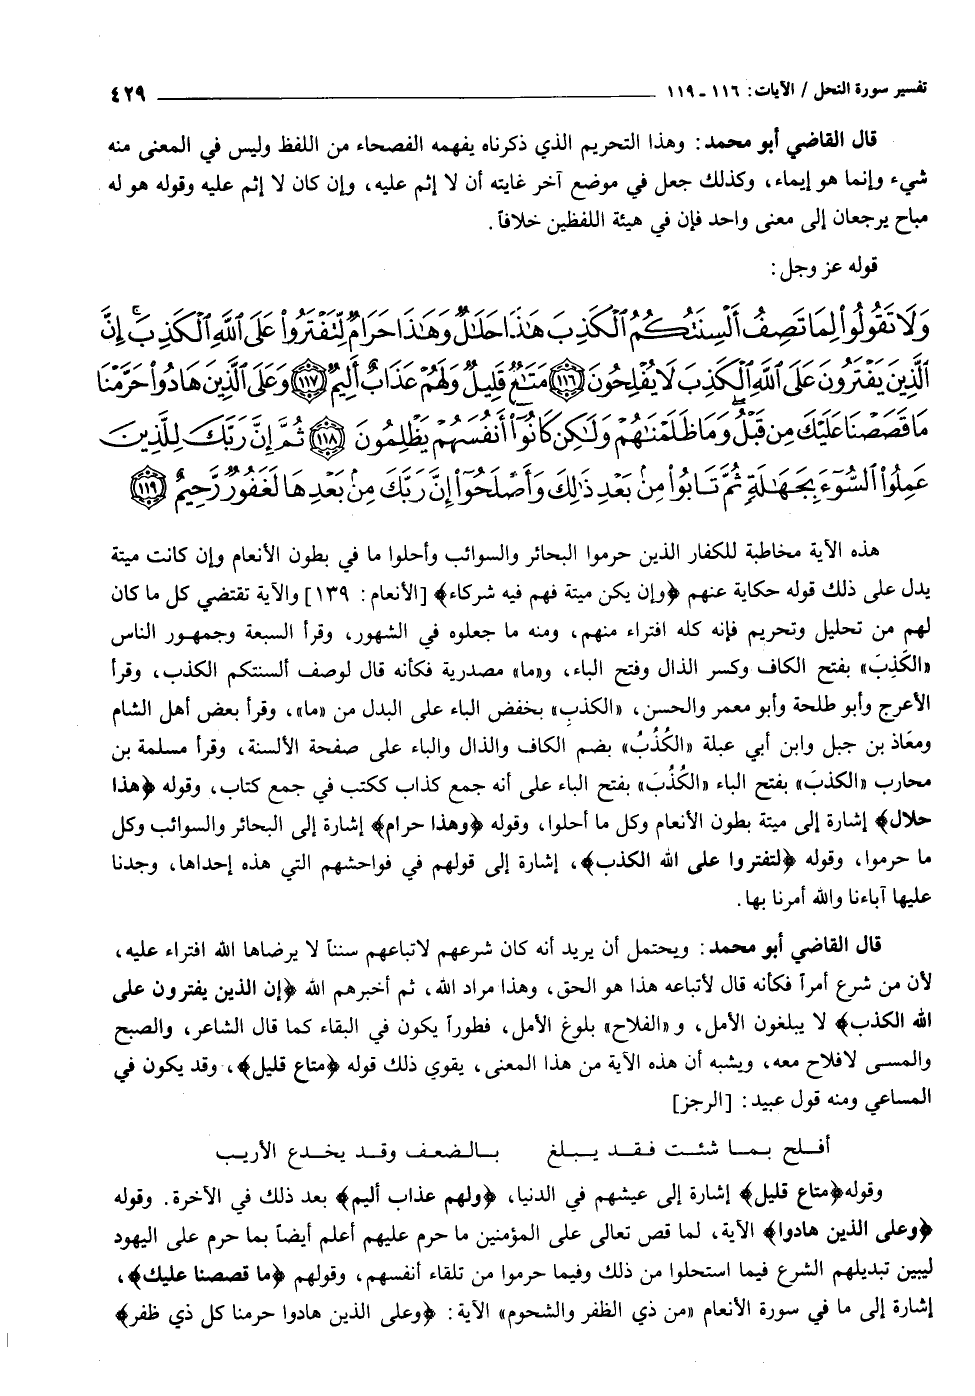 تفسير سورة النحل / الآيات: ١١٦ ـ ١١٩ ــــــ ٤٢٩
قال القاضي أبو محمد: وهذا التحريم الذي ذكرناه يفهمه الفصحاء من اللفظ وليس في المعنى منه
شيء وإنما هو إيماء، وكذلك جعل في موضع آخر غايته أن لا إثم عليه، وإن كان لا إثم عليه وقوله هو له
مباح يرجعان إلى معنى واحد فإن في هيئة اللفظين خلافاً.
قوله عز وجل:
وَلَا تَقُولُوا۟ لِمَا تَصِفُ أَلْسِنَتُكُمُ ٱلْكَذِبَ هَٰذَا حَلَٰلٌ وَهَٰذَا حَرَامٌ لِّتَفْتَرُوا۟ عَلَى ٱللَّهِ ٱلْكَذِبَ ۚ إِنَّ
ٱلَّذِينَ يَفْتَرُونَ عَلَى ٱللَّهِ ٱلْكَذِبَ لَا يُفْلِحُونَ ﴿١١٦﴾ مَتَٰعٌ قَلِيلٌ وَلَهُمْ عَذَابٌ أَلِيمٌ ﴿١١٧﴾ وَعَلَى ٱلَّذِينَ هَادُوا۟ حَرَّمْنَا
مَا قَصَصْنَا عَلَيْكَ مِن قَبْلُ ۖ وَمَا ظَلَمْنَٰهُمْ وَلَٰكِن كَانُوٓا۟ أَنفُسَهُمْ يَظْلِمُونَ ﴿١١٨﴾ ثُمَّ إِنَّ رَبَّكَ لِلَّذِينَ
عَمِلُوا۟ ٱلسُّوٓءَ بِجَهَٰلَةٍ ثُمَّ تَابُوا۟ مِنۢ بَعْدِ ذَٰلِكَ وَأَصْلَحُوٓا۟ إِنَّ رَبَّكَ مِنۢ بَعْدِهَا لَغَفُورٌ رَّحِيمٌ ﴿١١٩﴾
هذه الآية مخاطبة للكفار الذين حرموا البحائر والسوائب وأحلوا ما في بطون الأنعام وإن كانت ميتة
يدل على ذلك قوله حكاية عنهم ﴿وإن يكن ميتة فهم فيه شركاء﴾ [الأنعام: ١٣٩] والآية تقتضي كل ما كان
لهم من تحليل وتحريم فإنه كله افتراء منهم، ومنه ما جعلوه في الشهور، وقرأ السبعة وجمهور الناس
«الكَذِبَ» بفتح الكاف وكسر الذال وفتح الباء، و«ما» مصدرية فكأنه قال لوصف ألسنتكم الكذب، وقرأ
الأعرج وأبو طلحة وأبو معمر والحسن، «الكذبِ» بخفض الباء على البدل من «ما»، وقرأ بعض أهل الشام
ومعَاذ بن جبل وابن أبي عبلة «الكُذُبُ» بضم الكاف والذال والباء على صفحة الألسنة، وقرأ مسلمة بن
محارب «الكذبَ» بفتح الباء «الكُذُبَ» بفتح الباء على أنه جمع كذاب ككتب في جمع كتاب، وقوله ﴿هذا
حلال﴾ إشارة إلى ميتة بطون الأنعام وكل ما أحلوا، وقوله ﴿وهذا حرام﴾ إشارة إلى البحائر والسوائب وكل
ما حرموا، وقوله ﴿لتفتروا على الله الكذب﴾، إشارة إلى قولهم في فواحشهم التي هذه إحداها، وجدنا
عليها آباءنا والله أمرنا بها.
قال القاضي أبو محمد: ويحتمل أن يريد أنه كان شرعهم لاتباعهم سنناً لا يرضاها الله افتراء عليه،
لأن من شرع أمراً فكأنه قال لأتباعه هذا هو الحق، وهذا مراد الله، ثم أخبرهم الله ﴿إن الذين يفترون على
الله الكذب﴾ لا يبلغون الأمل، و«الفلاح» بلوغ الأمل، فطوراً يكون في البقاء كما قال الشاعر، والصبح
والمسى لافلاح معه، ويشبه أن هذه الآية من هذا المعنى، يقوي ذلك قوله ﴿متاع قليل﴾، وقد يكون في
المساعي ومنه قول عبيد: [الرجز]
أفلح بما شئت فقد يبلغ بالضعف وقد يخدع الأريب
وقوله﴿متاع قليل﴾ إشارة إلى عيشهم في الدنيا، ﴿ولهم عذاب أليم﴾ بعد ذلك في الآخرة. وقوله
﴿وعلى الذين هادوا﴾ الآية، لما قص تعالى على المؤمنين ما حرم عليهم أعلم أيضاً بما حرم على اليهود
ليبين تبديلهم الشرع فيما استحلوا من ذلك وفيما حرموا من تلقاء أنفسهم، وقولهم ﴿ما قصصنا عليك﴾،
إشارة إلى ما في سورة الأنعام «من ذي الظفر والشحوم» الآية: ﴿وعلى الذين هادوا حرمنا كل ذي ظفر﴾